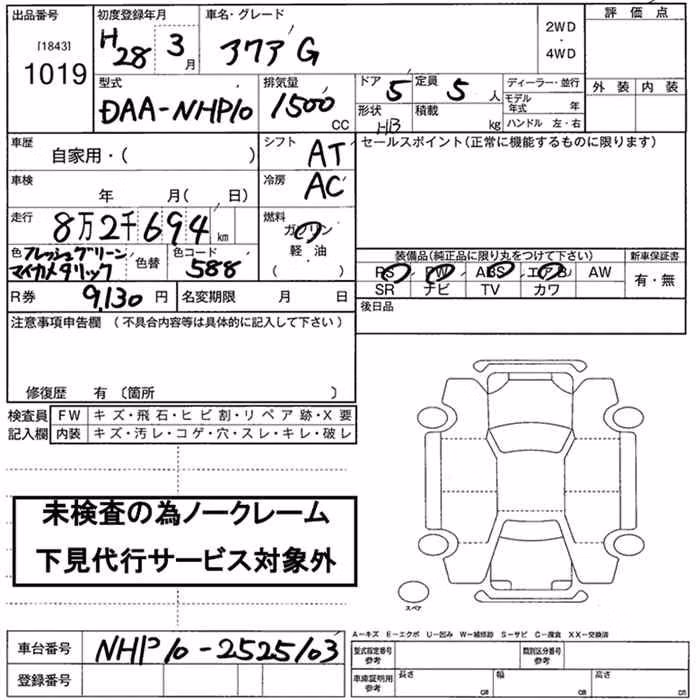 出品番号 初度登録年月 車名・グレード 2WD・4WD 評価点
[1843] 1019 H28 3月 アクア G
外装 内装
型式 DAA-NHP10 排気量 1500 CC ドア 5 定員 5 人 ディーラー・並行
形状 HB 積載 kg モデル年式 年
ハンドル 左・右
車歴 自家用・( ) シフト AT セールスポイント(正常に機能するものに限ります)
車検 年 月( 日) 冷房 AC
走行 8万2千694 km 燃料 ガソリン 軽・油 ( )
色 フレッシュグリーンマイカメタリック 色替 色コード 588
装備品(純正品に限り丸をつけて下さい) 新車保証書
PS PW ABS エアB AW 有・無
SR ナビ TV カワ
R券 9,130 円 名変期限 月 日 後日品
注意事項申告欄 (不具合内容等は具体的に記入して下さい)
修復歴 有 〔箇所 〕
検査員 FW キズ・飛石・ヒビ割・リペア跡・X要
記入欄 内装 キズ・汚レ・コゲ・穴・スレ・キレ・破レ
未検査の為ノークレーム
下見代行サービス対象外
スペア
A-キズ E-エクボ U-凹み W-補修跡 S-サビ C-腐食 XX-交換済
車台番号 NHP10-2525103 型式指定番号 参考 類別区分番号 参考
登録番号 車庫証明用 参考 長さ cm 幅 cm 高さ cm